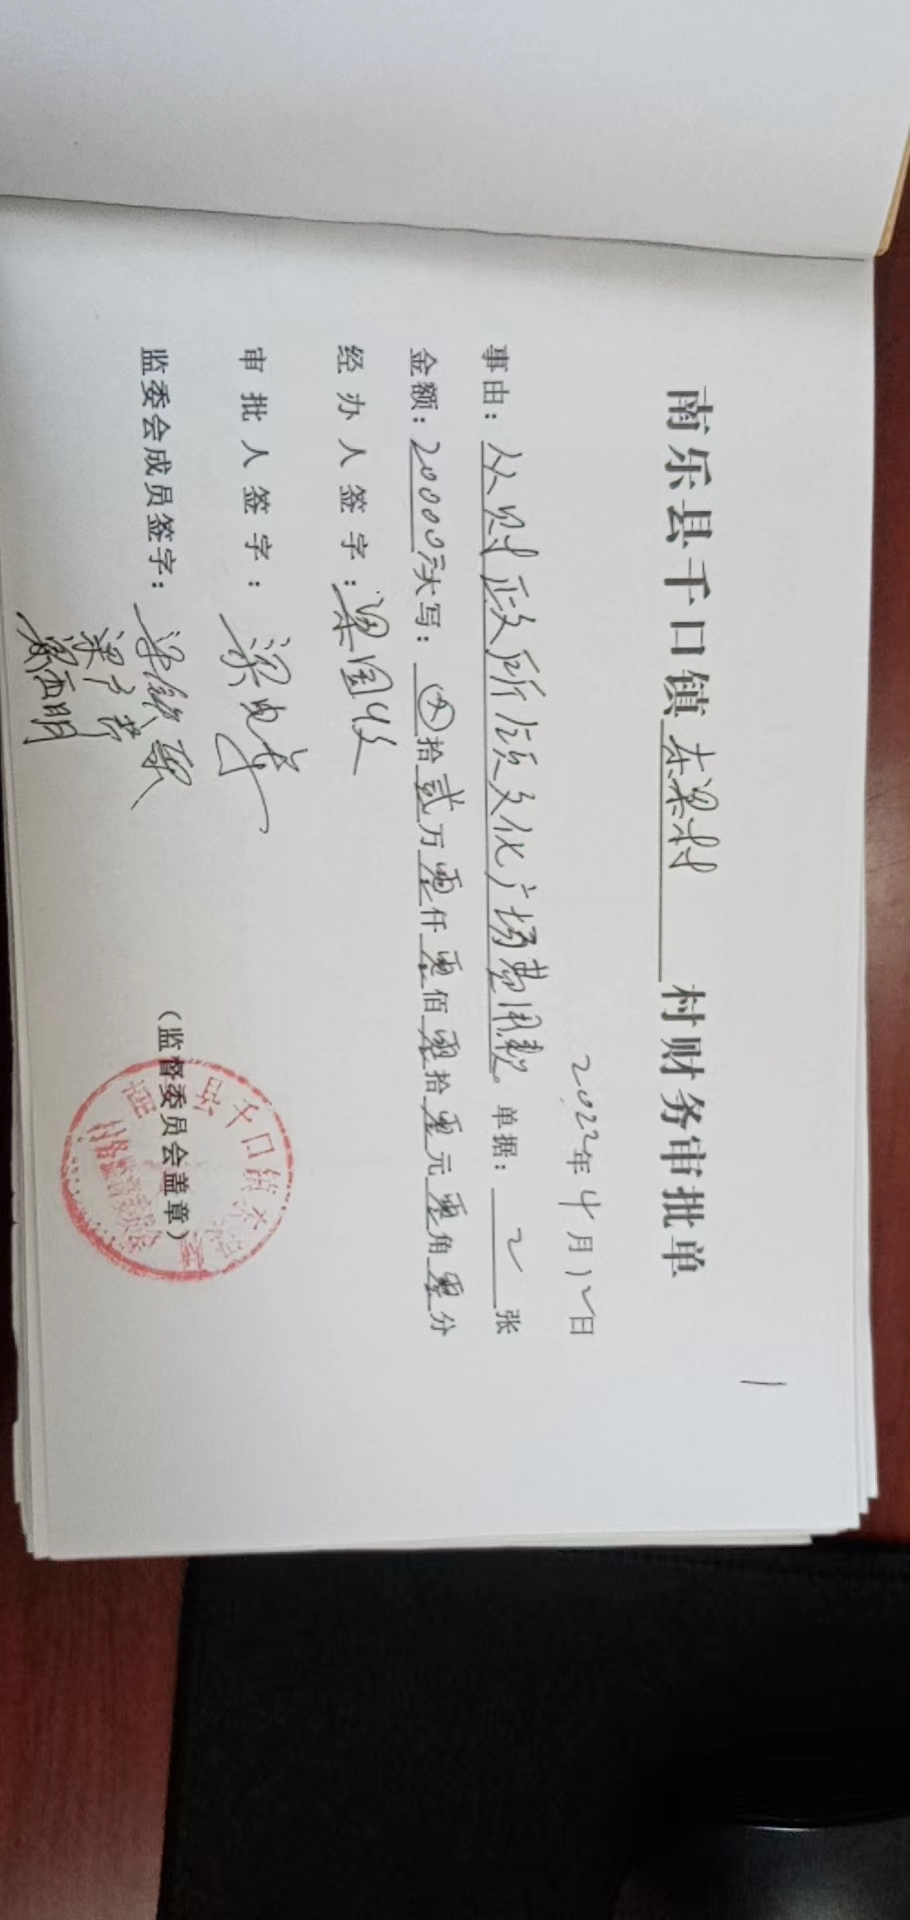 1
南乐县千口镇东梁村村财务审批单
2022年4月12日
事由：从财政所领文化广场费用款 单据：2张
金额：20000元大写：⊗拾贰万零仟零佰零拾零元零角零分
经办人签字：梁国收
审批人签字：梁
监委会成员签字：梁
梁
梁西明
（监督委员会盖章）